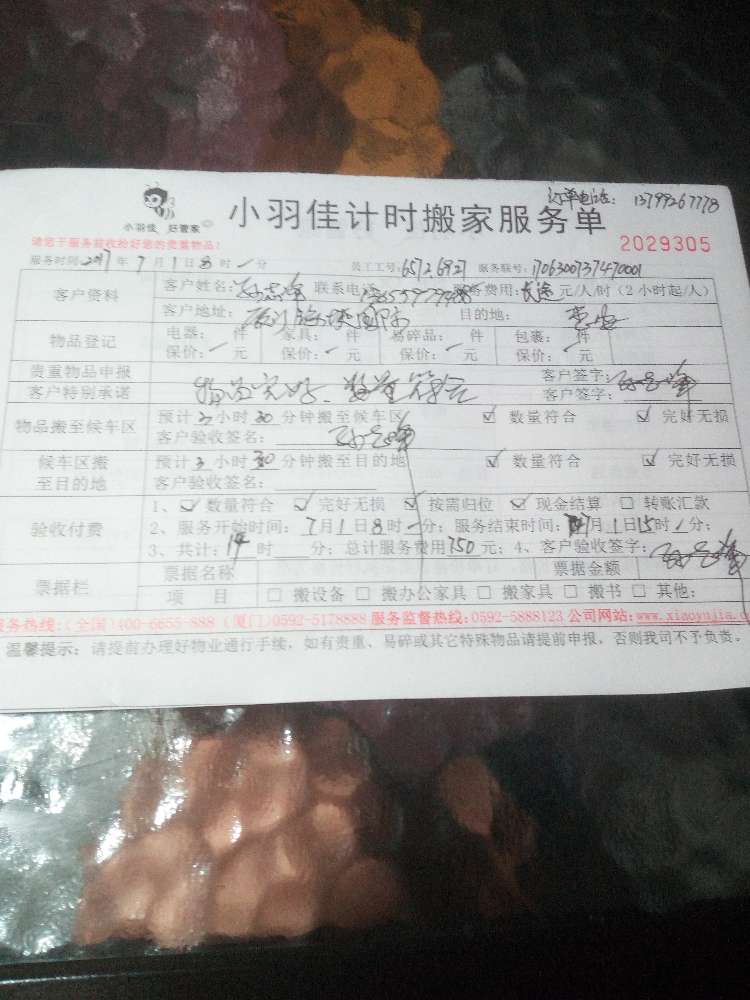 订单电话: 13799267778
小羽佳 好管家
小羽佳计时搬家服务单
请您于服务前收拾好您的贵重物品!
2029305
服务时间:2017年7月1日8时一分 员工工号:6572.6927 服务联号:1706300737470001
客户资料 客户姓名: 联系电话: 服务费用:长途元/人/时(2小时起/人)
客户地址: 目的地:
物品登记 电器: 件 家具: 件 易碎品: 件 包裹: 件
保价:一元 保价:一元 保价:一元 保价:一元
贵重物品申报 客户签字:
客户特别承诺 物品完好、数量符合 客户签字:
物品搬至候车区 预计2小时30分钟搬至候车区 ☑ 数量符合 ☑ 完好无损
客户验收签名:
候车区搬至目的地 预计3小时30分钟搬至目的地 ☑ 数量符合 ☑ 完好无损
客户验收签名:
验收付费 1、☑ 数量符合 ☑ 完好无损 ☑ 按需归位 ☑ 现金结算 □ 转账汇款
2、服务开始时间:7月1日8时一分;服务结束时间:7月1日15时1分;
3、共计:14时 分;总计服务费用750元;4、客户验收签字:
票据栏 票据名称 票据金额
项 目 □ 搬设备 □ 搬办公家具 □ 搬家具 □ 搬书 □ 其他:
务热线:(全国)400-6655-888 (厦门)0592-5178888 服务监督热线:0592-5888123 公司网站:www.xiaoyujia.c
温馨提示:请提前办理好物业通行手续,如有贵重、易碎或其它特殊物品请提前申报,否则我司不予负责。